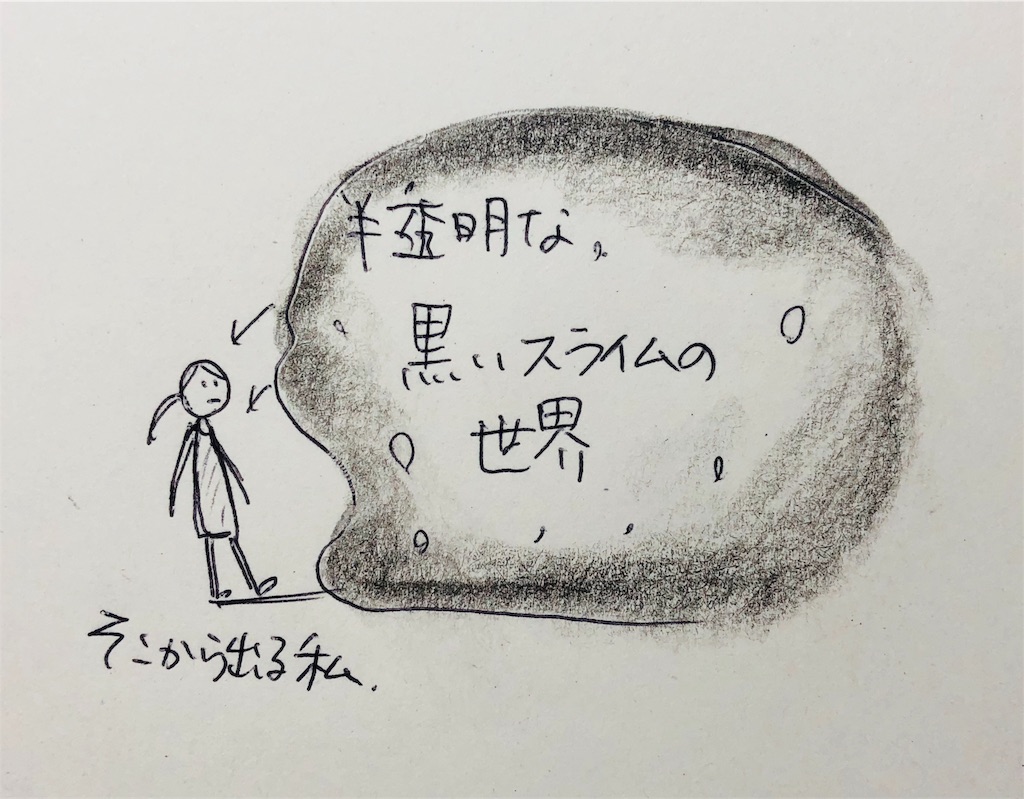 半透明な。
黒いスライムの
世界
そこから出る私.